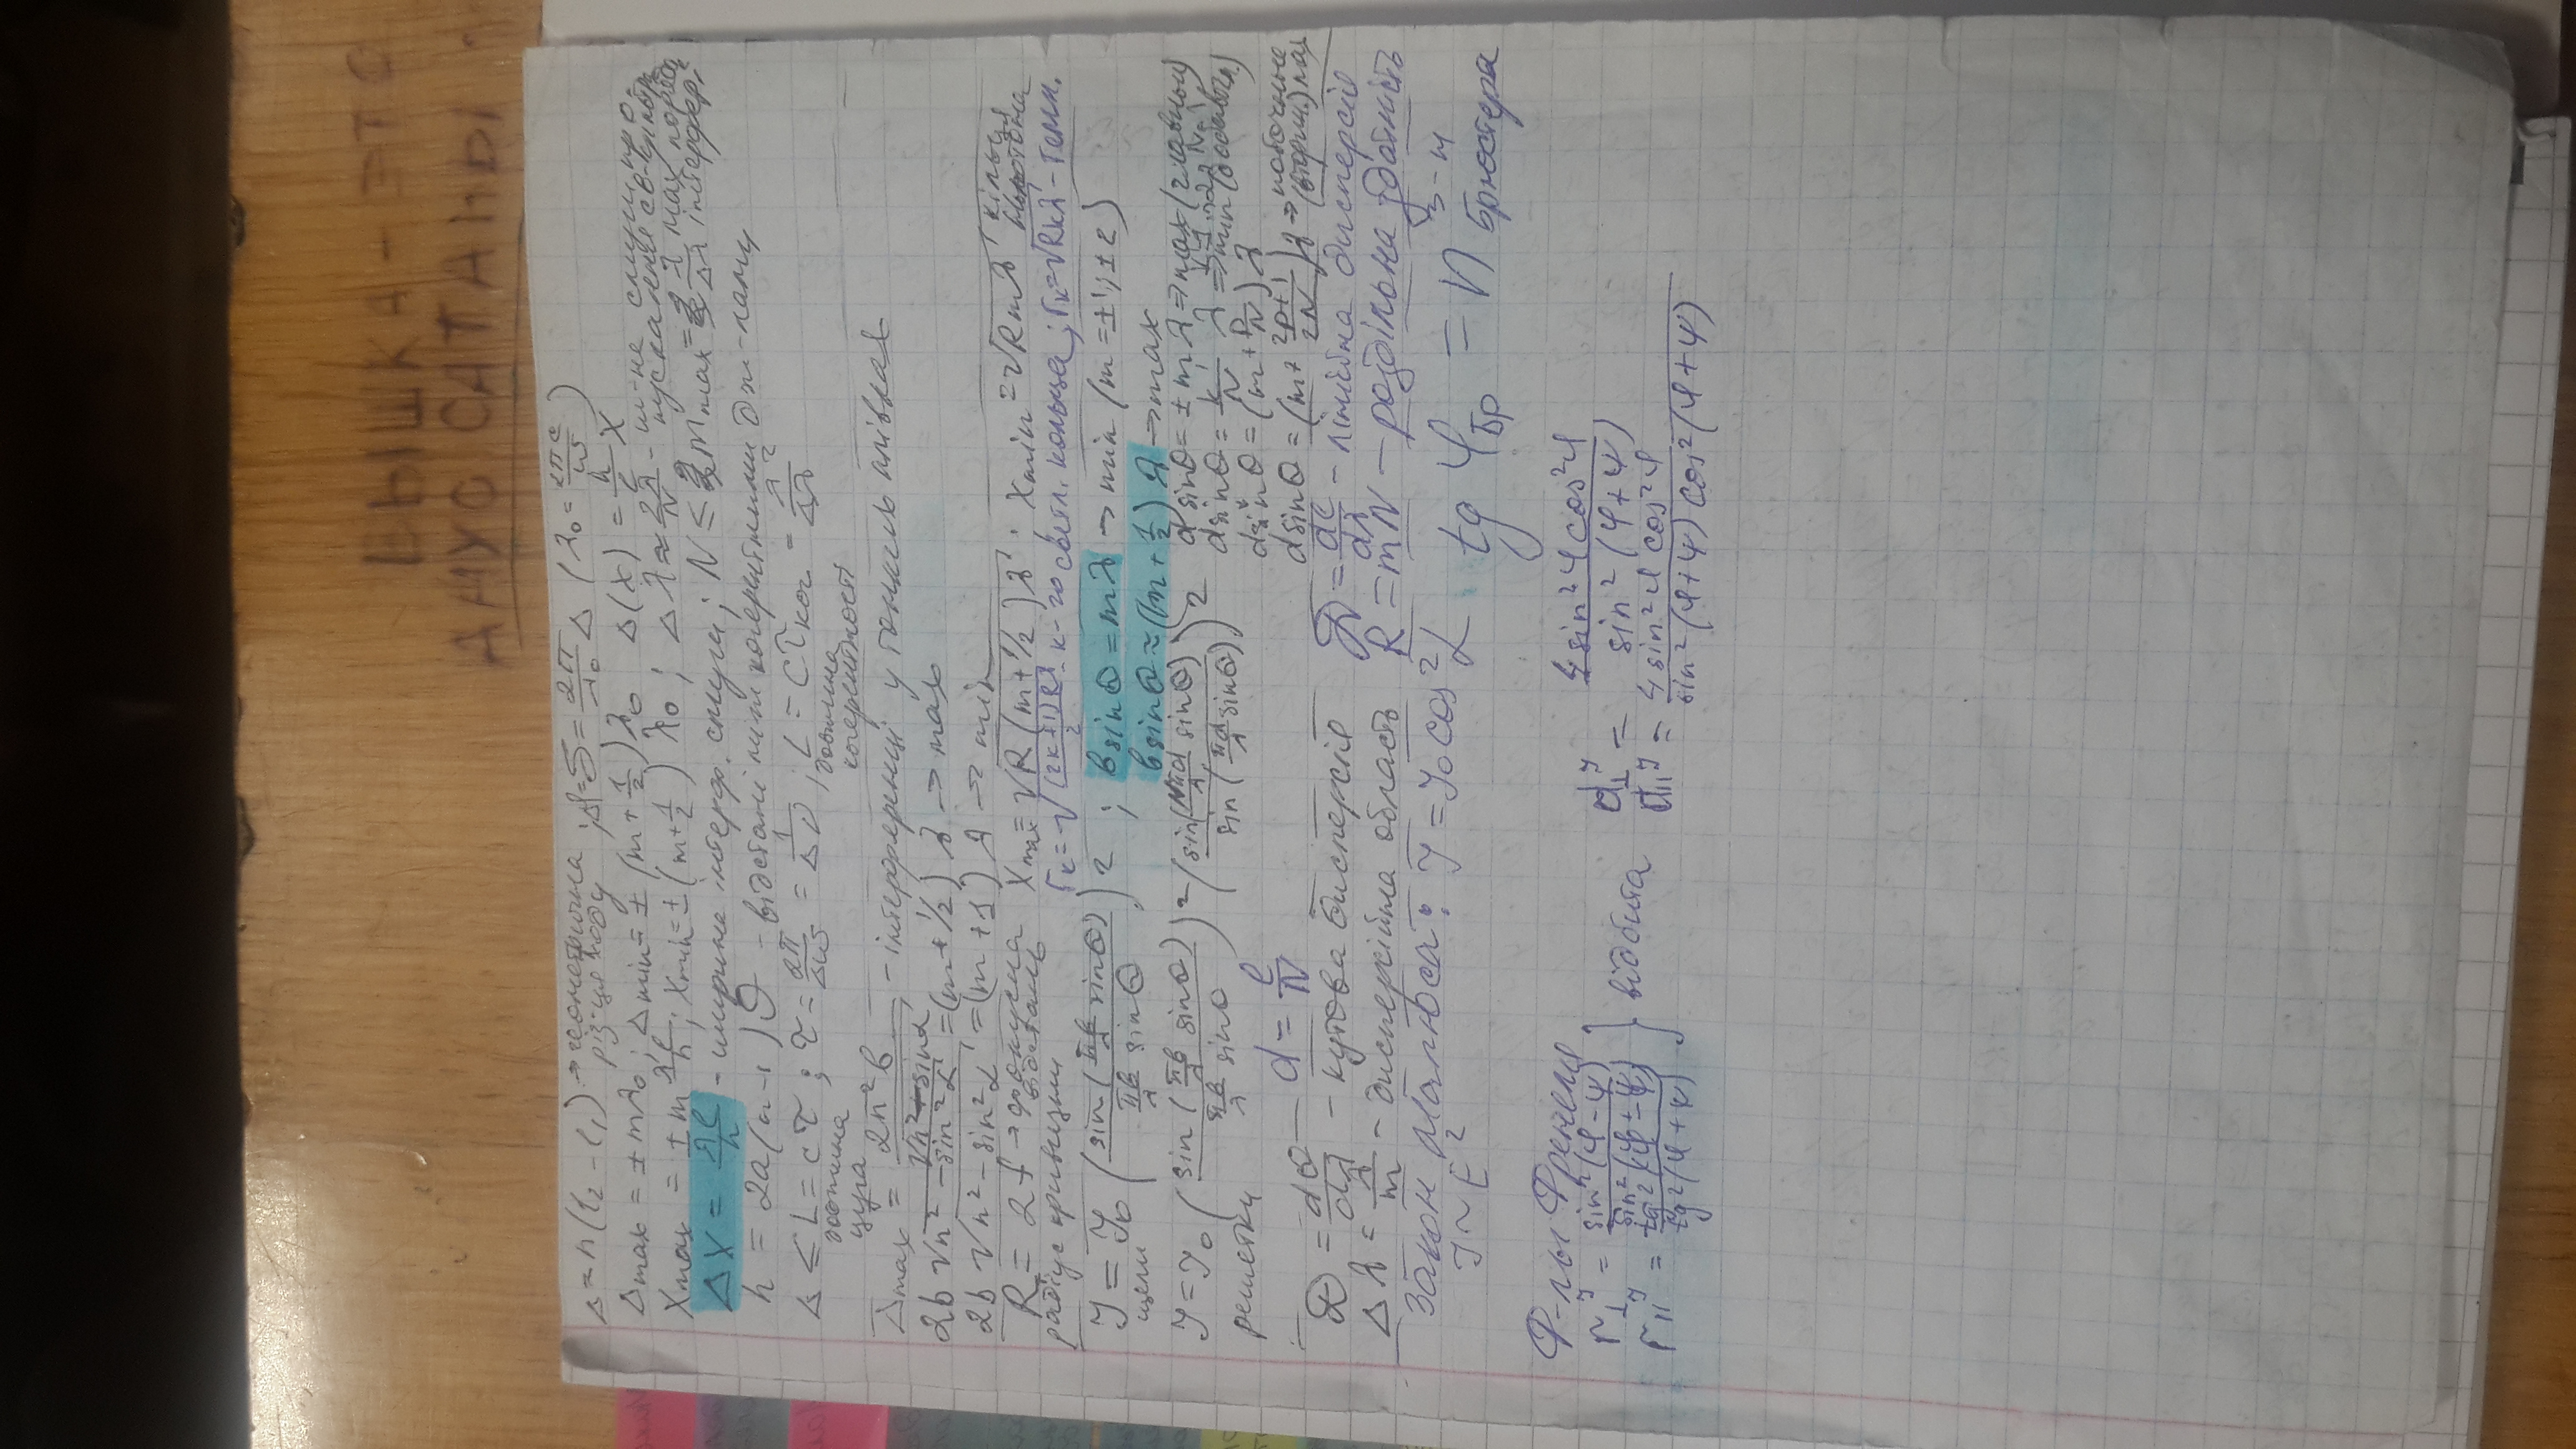 ВЫШКА - ЭТО
АНУС САТАНЫ
Δ = n(l₂ - l₁) → геометрична різ-ця ходу ; Δφ = δ = 2π/λ₀ Δ (λ₀ = 2πc/ω)
Δmax = ± mλ₀ ; Δmin = ± (m + 1/2) λ₀ Δ(x) = h/l x
Xmax = ± m λl/h ; Xmin = ± (m + 1/2) λ₀ ; Δλ ≈ 2λ/N - ш-на смуги про-пускання св-фільтра
ΔX = λl/h - ширина інтерф. смуги ; N ≤ 2 Mmax = 2 λ/Δλ max порядок інтерфер.
h = 2a(n-1)ϑ - відстані між когерентними дж-лами
Δ ≤ L = cτ ; τ = 2π/Δω = 1/Δν ; L = cτког = λ²/Δλ
довжина цуга довжина когерентності
Δmax = 2n²b/√n² + sinα - інтерференці у тонких плівках
2b √n² - sin²α = (m + 1/2) λ → max
2b √n² - sin²α = (m + 1) λ → min
R = 2f → фокусна відстань Xmax = √R (m + 1/2) λ ; Xmin = √Rmλ кільця Ньютона
радіус кривизни rk = √(2k+1)Rλ/2 - k-го светл. кольца ; rk = √Rkλ - темн.
I = I₀ (sin(πb/λ sinθ) / πb/λ sinθ)² ; b sinθ = mλ → min (m = ±1, ±2)
щели b sinθ ≈ (m + 1/2) λ → max
I = I₀ (sin(πb/λ sinθ) / πb/λ sinθ)² (sin(Nπd/λ sinθ) / sin(πd/λ sinθ))² d sinθ = ± m λ ⇒ max (главный)
решетки d sinθ = k'/N λ ⇒ min (добавоч.)
d sinθ = (m + p/N) λ
d = l/N d sinθ = (m + 2p+1/2N) λ ⇒ побочные (вторич.) max
D = dθ/dλ - кутова дисперсія D = dl/dλ - лінійна дисперсія
Δλ = λ/m - дисперсійна область R = mN - роздільна здатність
Закон Малюса: I = I₀ cos²α tg φБр = n з-н Брюстера
I ~ E²
Ф-лы Френеля
r⊥ᴵ = sin²(φ-ψ) / sin²(φ+ψ) d⊥ᴵ = 4 sin²φ cos²φ / sin²(φ+ψ)
r∥ᴵ = tg²(φ-ψ) / tg²(φ+ψ) } відбита d∥ᴵ = 4 sin²φ cos²φ / sin²(φ+ψ) cos²(φ+ψ)